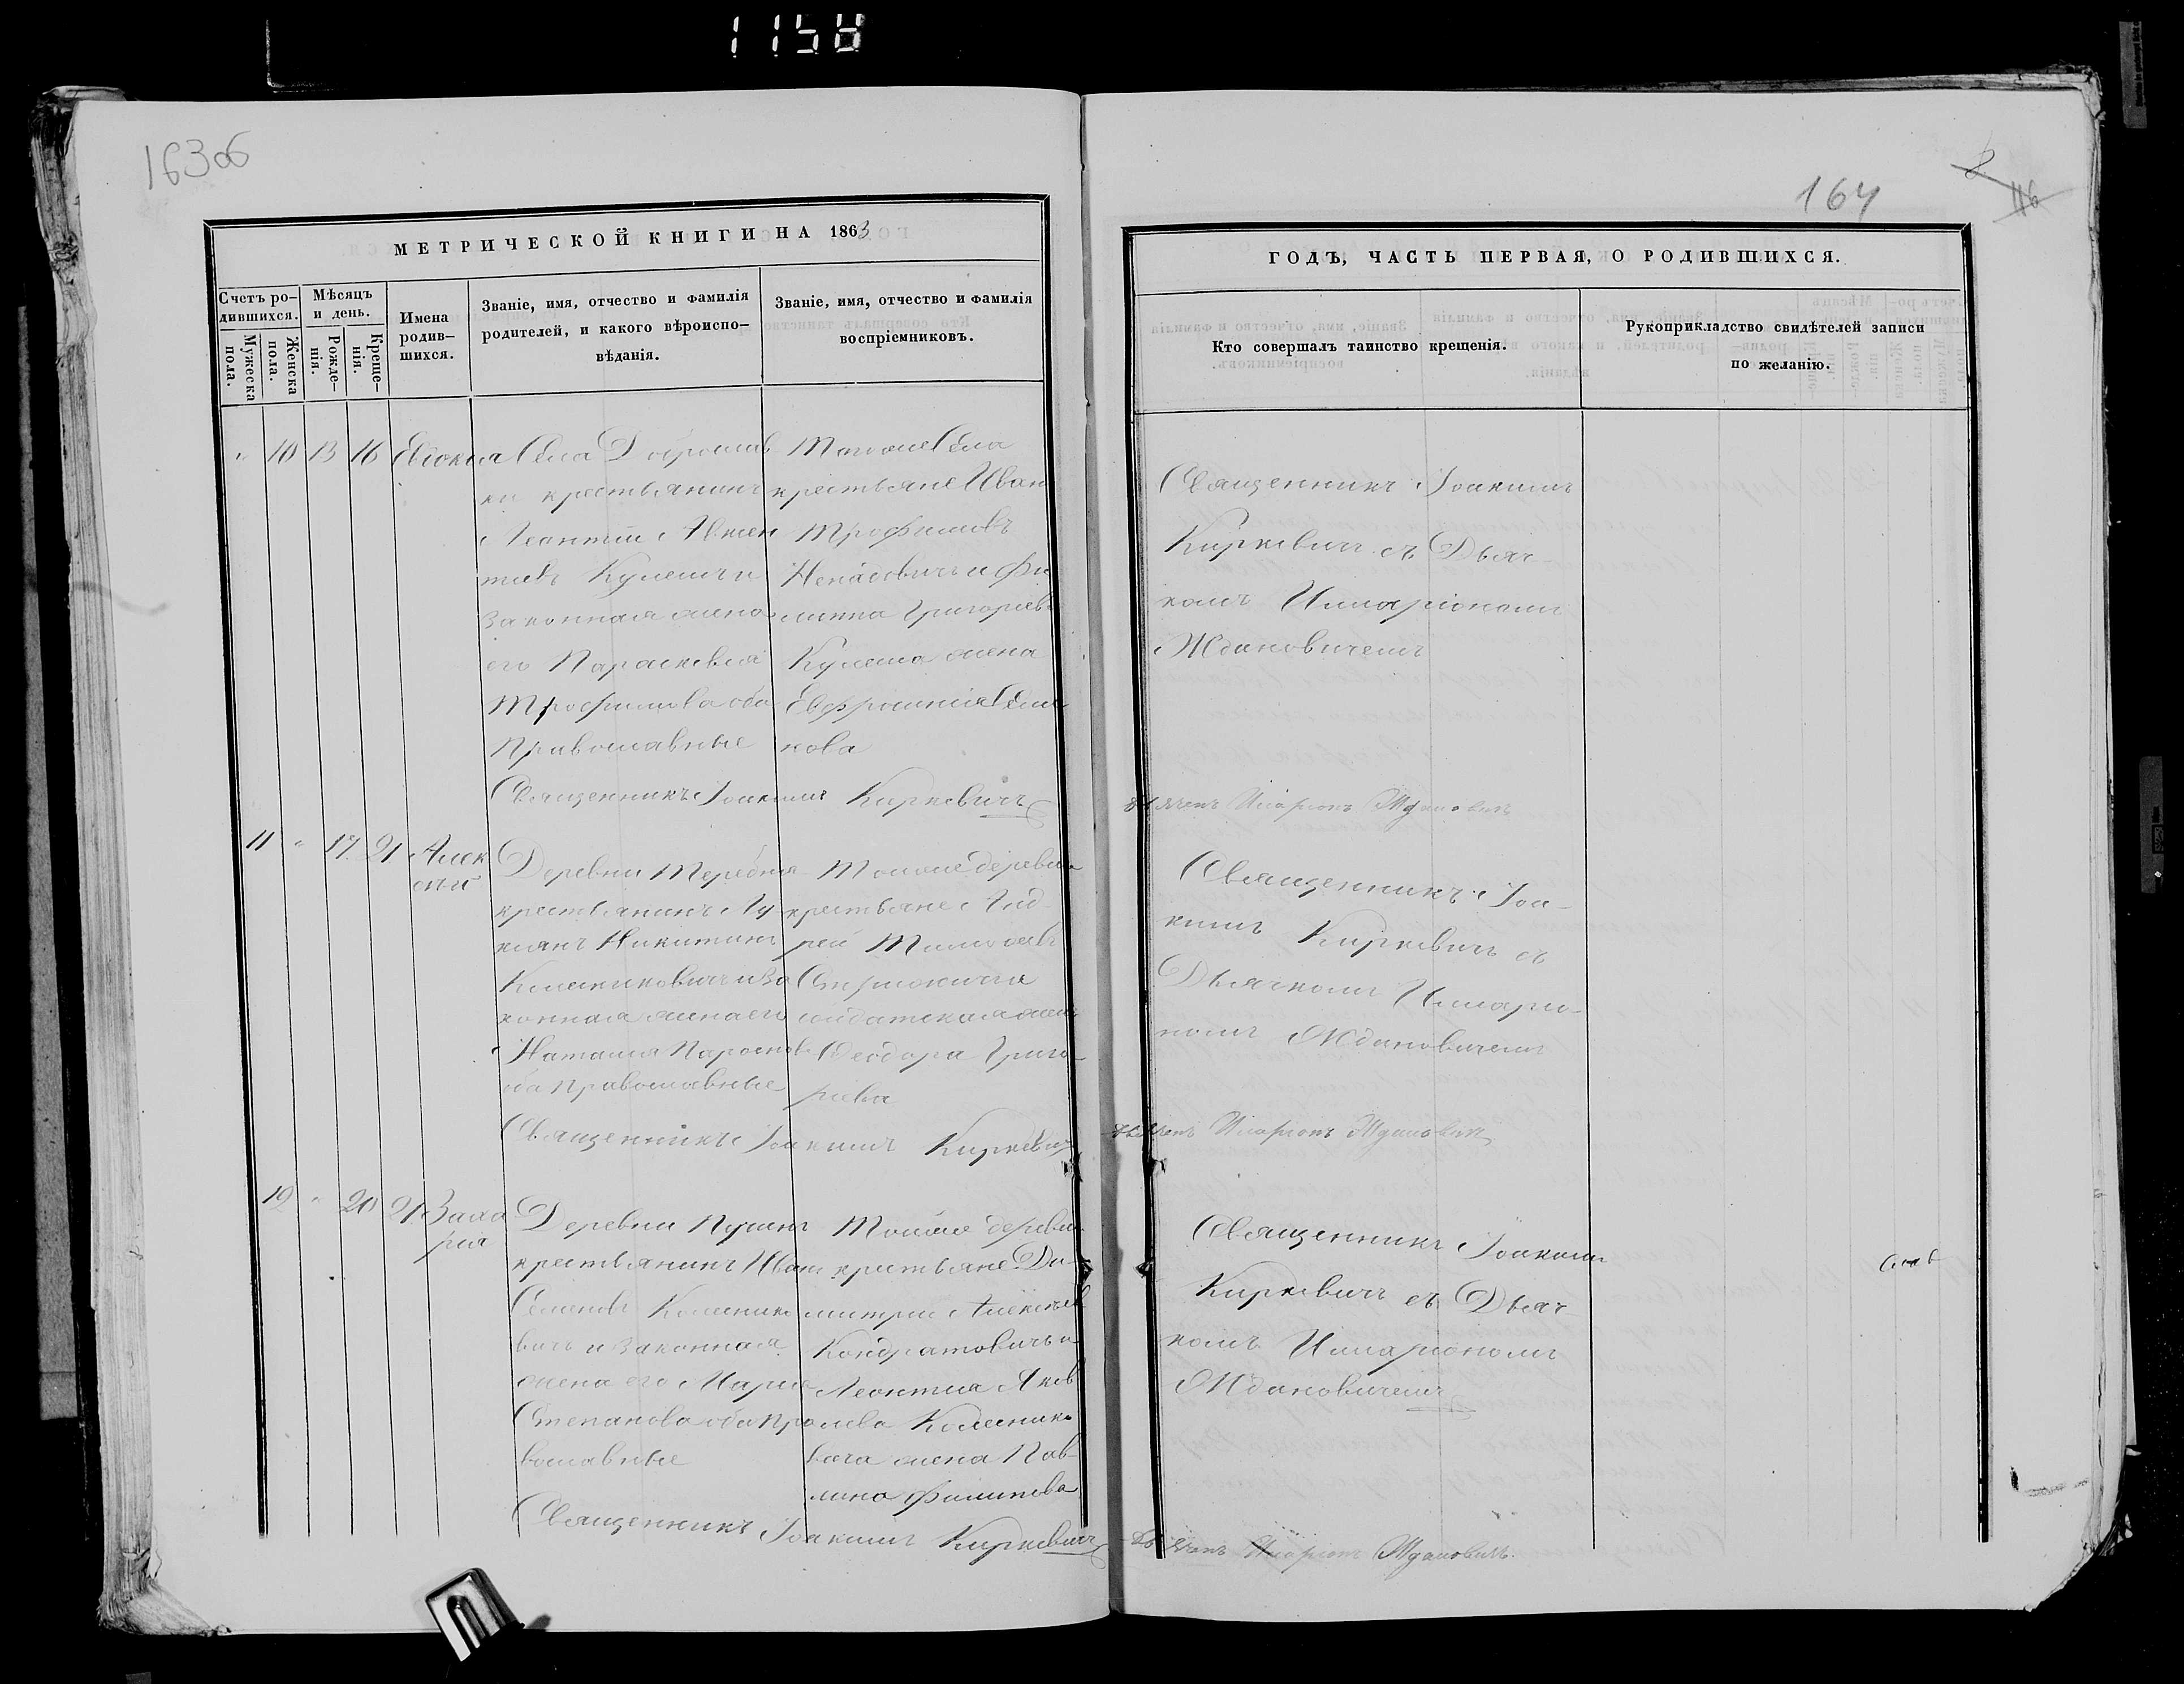 1158
163об
МЕТРИЧЕСКОЙ КНИГИ НА 1863
Счетъ ро-
дившихся.
Мужеска
пола.
Женска
пола.
Мѣсяцъ
и день.
Рожде-
нія.
Креще-
нія.
Имена
родив-
шихся.
Званіе, имя, отчество и фамилія
родителей, и какого вѣроиспо-
вѣданія.
Званіе, имя, отчество и фамилія
воспріемниковъ.
" 10 13 16 Евдокія
Села Доброслав
ки крестьянинъ
Леонтій Авксен
тіевъ Кулешъ и
законная жена
его Параскевія
Трофимова оба
Православные
Тогоже Села
крестьяне Иван
Трофимовъ
Ненадовичъ и Фи
липпа Григорьев
Кулеша жена
Евфросинія Семе
нова
Священникъ Іоакимъ Киркевичъ
11 " 17 21 Алек
сѣй
Деревни Теребня
крестьянинъ Лу
кіянъ Никитинъ
Колесниковичъ и за
конная жена его
Наталия
оба Православные
Тоиже деревни
крестьяне Анд
рей
солдатская жена
Феодора Григо-
рьева
Священникъ Іоакимъ Киркевичъ
12 " 20 21 Заха
рія
Деревни
крестьянинъ Иванъ
Семеновъ Колеснико
вичъ и законная
жена его Марія
Степанова оба Пра
вославные
Тойже деревни
крестьяне Ди-
митрій Алексѣев
Кондратовичъ и
Леонтия Яков
лева Колеснико
вича жена Пав-
лина Филипова
Священникъ Іоакимъ Киркевичъ
164
8
116
ГОДЪ, ЧАСТЬ ПЕРВАЯ, О РОДИВШИХСЯ.
Кто совершалъ таинство крещенія.
Рукоприкладство свидѣтелей записи
по желанію.
Священникъ Іоакимъ
Киркевичъ съ Дьяч
комъ Илларіономъ
Ждановичемъ
Дьячекъ Иларіонъ Ждановичъ
Священникъ Іоа-
кимъ Киркевичъ съ
Дьячкомъ Илларіо-
номъ Ждановичемъ
Дьячекъ Иларіонъ Ждановичъ
Священникъ Іоакимъ
Киркевичъ съ Дьяч
комъ Илларіономъ
Ждановичемъ
Дьячекъ Иларіонъ Ждановичъ.